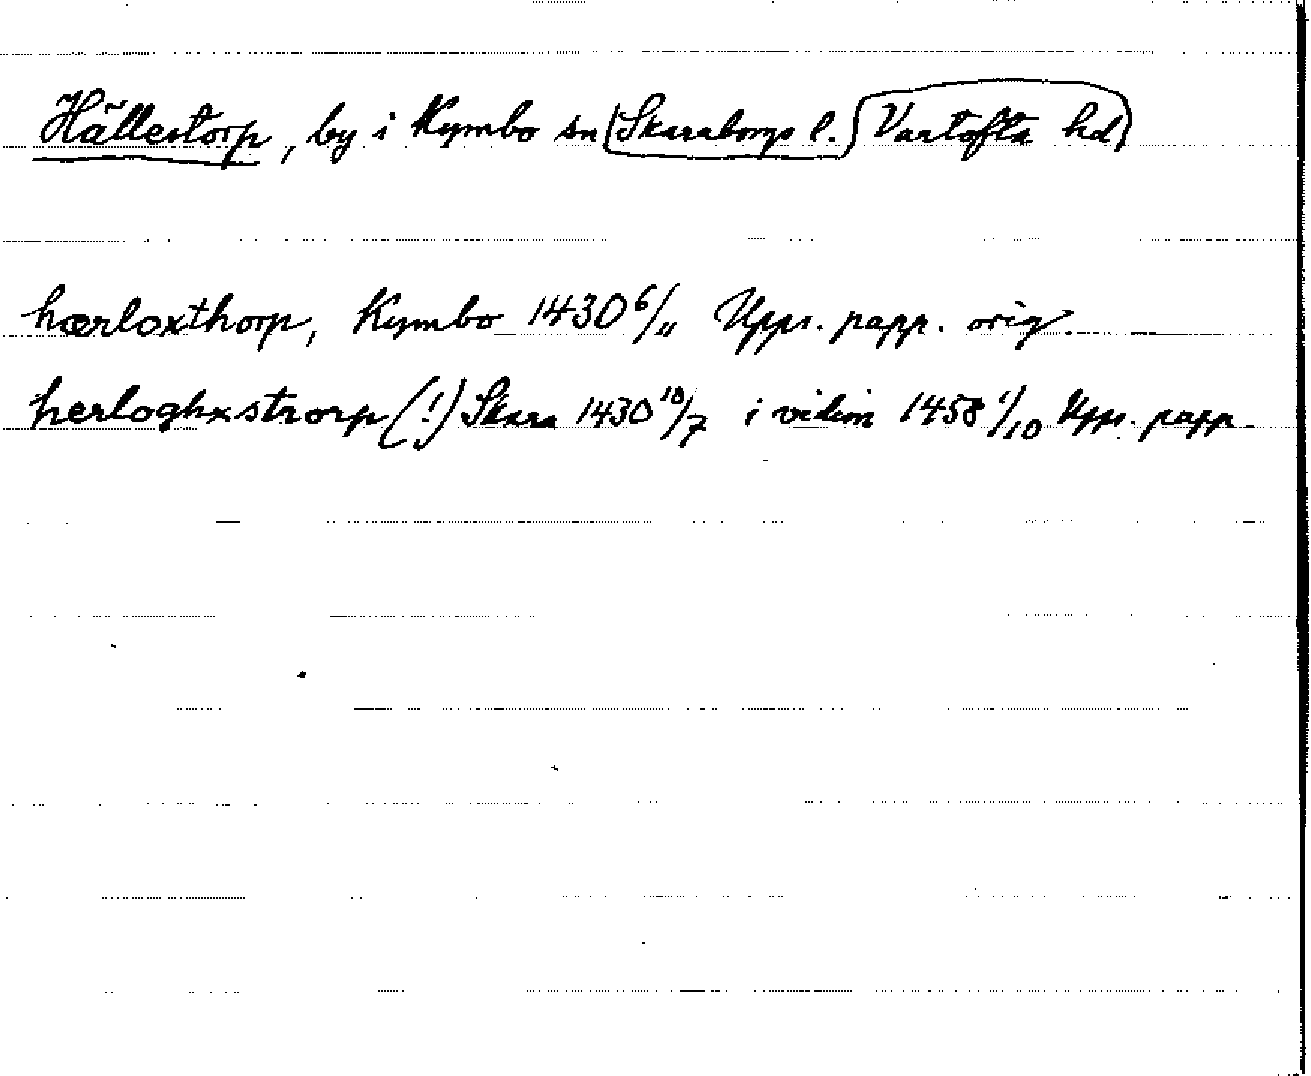 Hällestorp, by i Kymbo sn Skaraborgs l. Vartofta hd
hærloxthorp, Kymbo 1430 6/11 Upps. papp. orig.
herloghxstrorp (!) Skara 1430 10/7 i vidim 1458 1/10 Upps. papp.